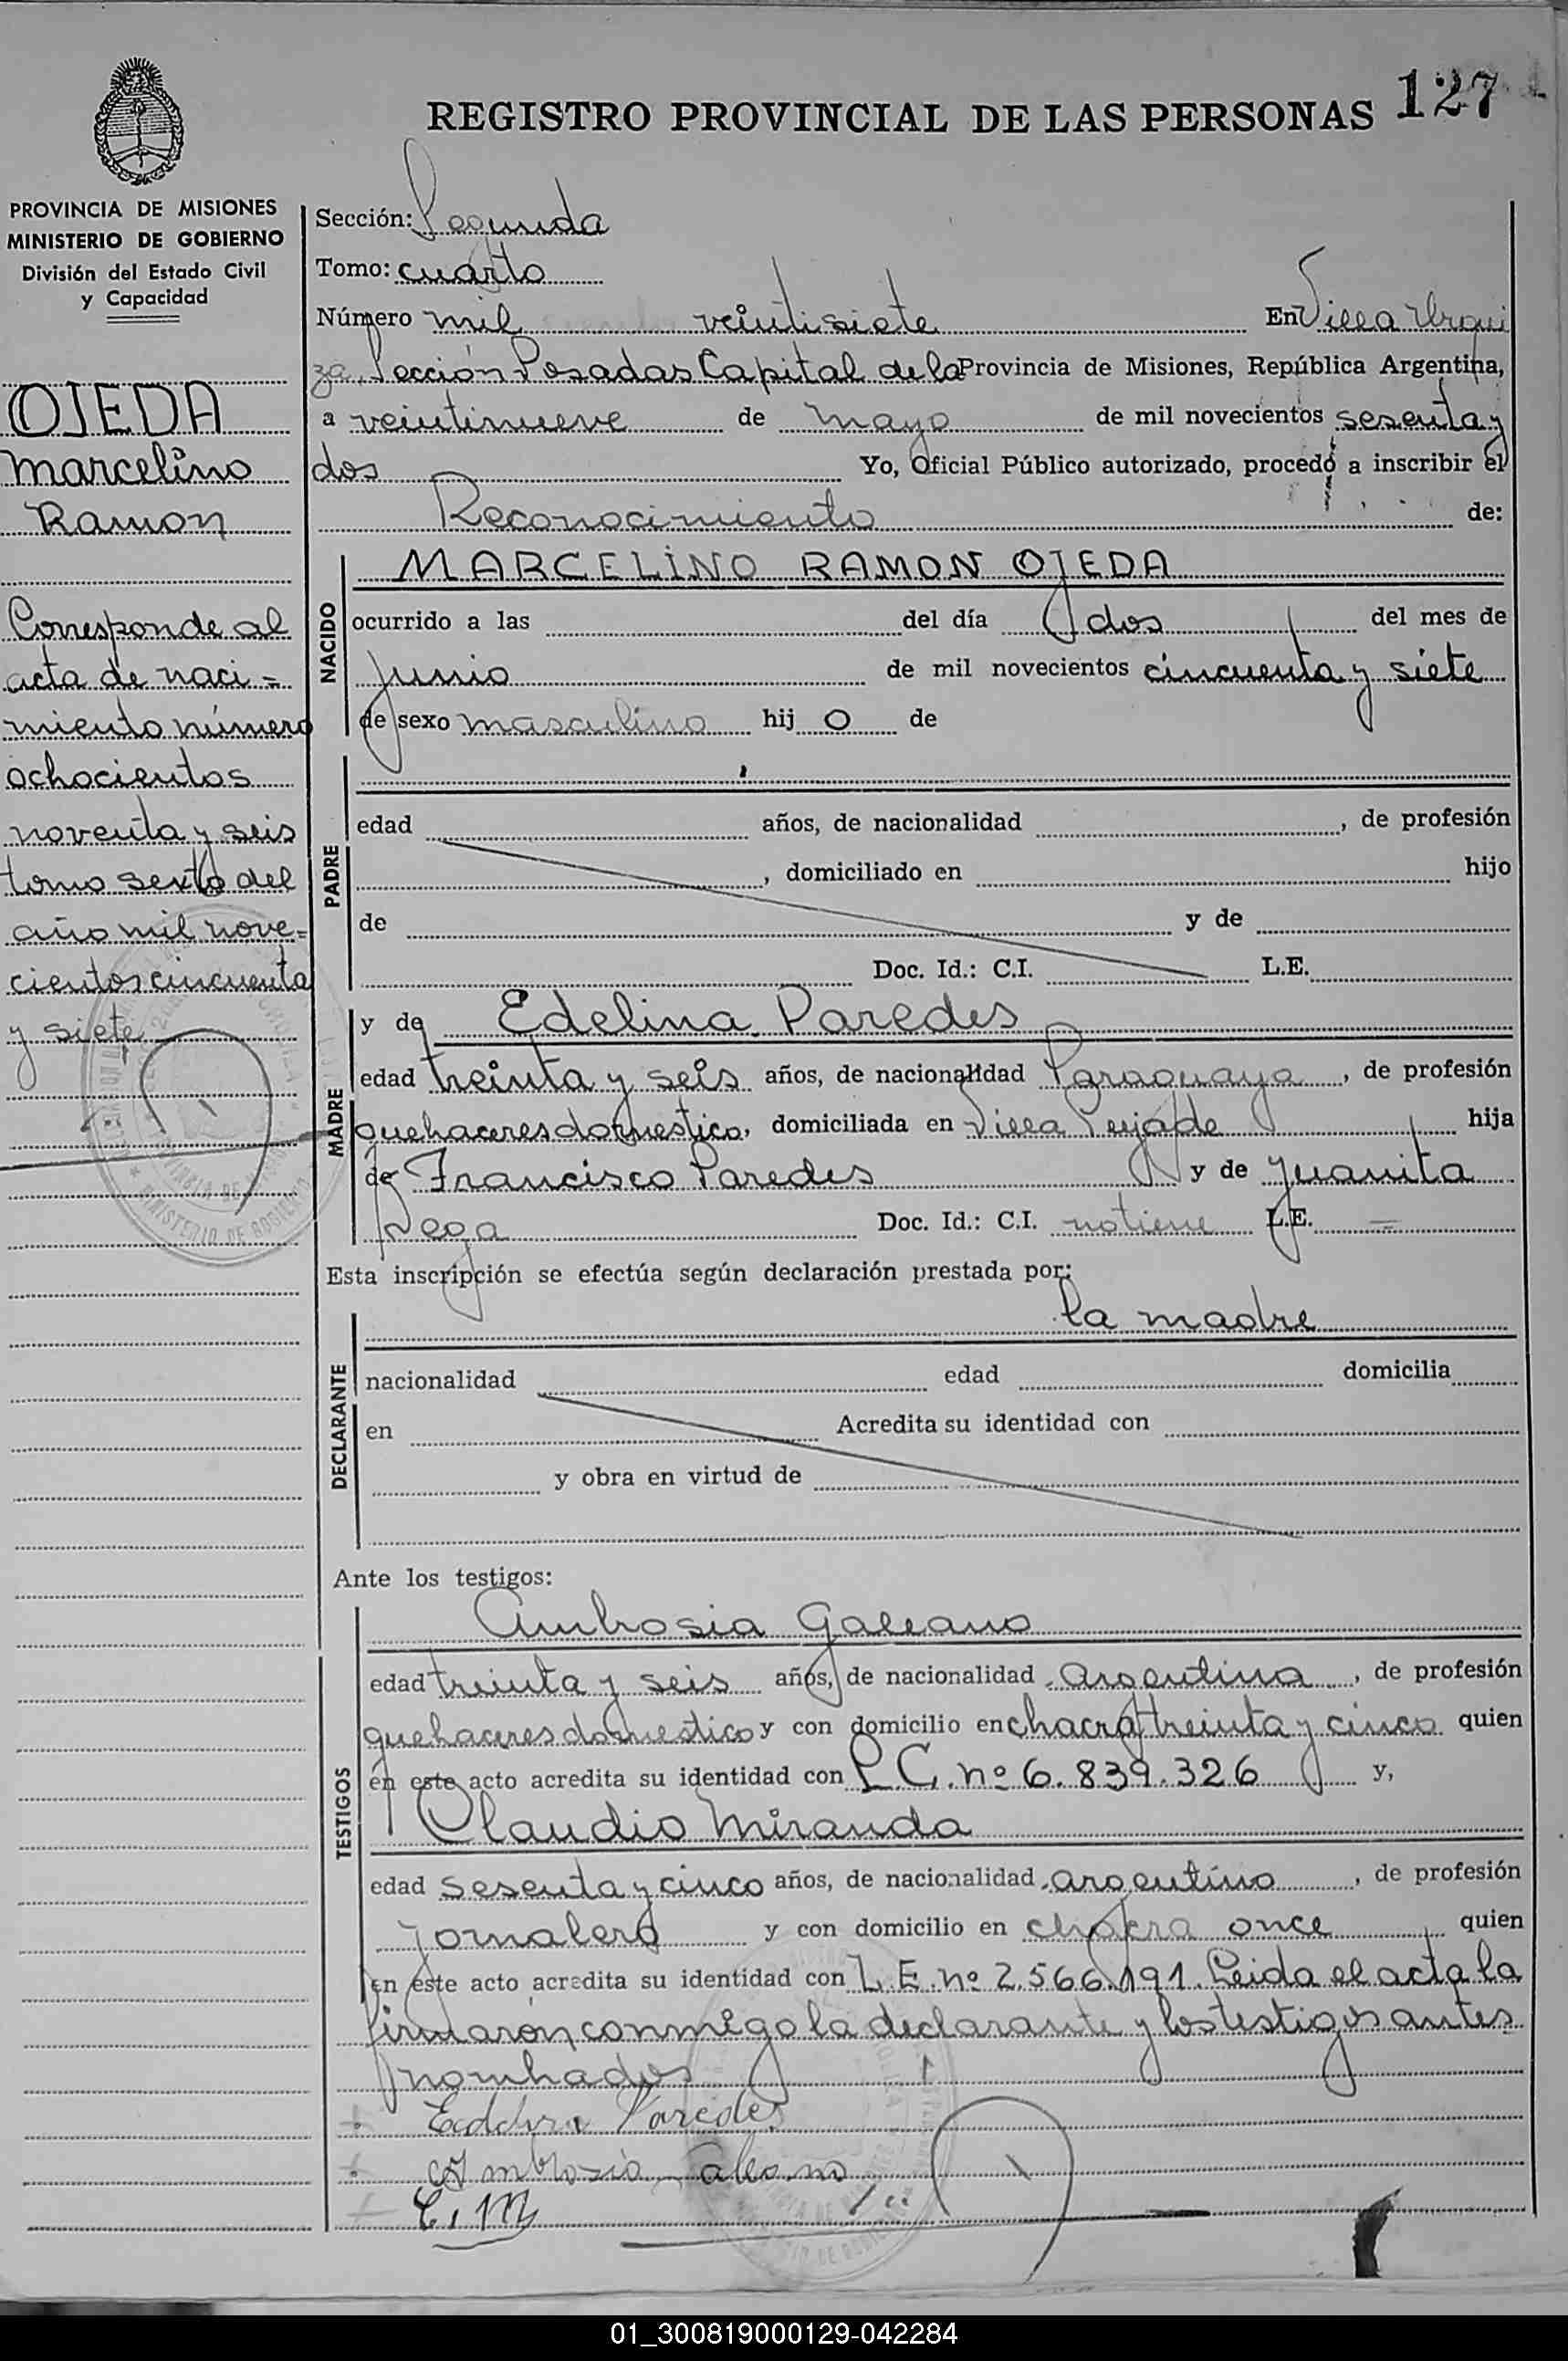 127
REGISTRO PROVINCIAL DE LAS PERSONAS
PROVINCIA DE MISIONES
MINISTERIO DE GOBIERNO
División del Estado Civil
y Capacidad
OJEDA
Marcelino
Ramon
Corresponde al
acta de naci=
miento número
ochocientos
noventa y seis
tomo sexto del
año mil nove=
cientos cincuenta
y siete
Sección: Segunda
Tomo: cuarto
Número mil veintisiete En Villa Urqui
za, Sección Posadas Capital de la Provincia de Misiones, República Argentina,
a veintinueve de mayo de mil novecientos sesenta y
dos Yo, Oficial Público autorizado, procedo a inscribir el
Reconocimiento de:
NACIDO
MARCELINO RAMON OJEDA
ocurrido a las del día dos del mes de
junio de mil novecientos cincuenta y siete
de sexo masculino hij o de
PADRE
edad años, de nacionalidad , de profesión
, domiciliado en hijo
de y de
Doc. Id.: C.I. L.E.
MADRE
y de Edelina Paredes
edad treinta y seis años, de nacionalidad Paraguaya, de profesión
quehaceres domestico, domiciliada en Villa hija
de Francisco Paredes y de Juanita
Vega Doc. Id.: C.I. no tiene L.E. =
Esta inscripción se efectúa según declaración prestada por:
la madre
DECLARANTE
nacionalidad edad domicilia
en Acredita su identidad con
y obra en virtud de
Ante los testigos:
TESTIGOS
Ambrosia Galeano
edad treinta y seis años, de nacionalidad argentina, de profesión
quehaceres domestico y con domicilio en chacra treinta y cinco quien
en este acto acredita su identidad con L.C. nº 6.839.326 y,
Claudio Miranda
edad sesenta y cinco años, de nacionalidad argentino, de profesión
jornalero y con domicilio en chacra once quien
en este acto acredita su identidad con L.E. nº 2.566.191. Leida el acta la
firmaron conmigo la declarante y los testigos antes
nombrados
Paredes
Ambrosia Galeano
C. M
01_300819000129-042284